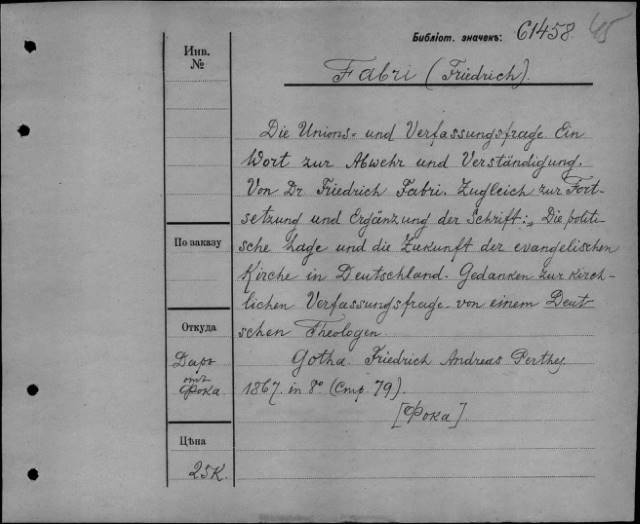 Библіот. значекъ: 61458. 45
Инв.
№
Fabri (Friedrich).
Die Unions- und Verfassungsfrage. Ein
Wort zur Abwehr und Verständigung.
Von Dr Friedrich Fabri. Zugleich zur Fort-
setzung und Ergänzung der Schrift: „Die politi-
По заказу
sche Lage und die Zukunft der evangelischen
Kirche in Deutschland. Gedanken zur kirch-
lichen Verfassungsfrage von einem Deut-
Откуда
schen Theologen
Gotha. Friedrich Andreas Perthes
Даръ
отъ
Фока.
1867. in 8° (Стр. 79).
[Фока]
Цѣна
25к.